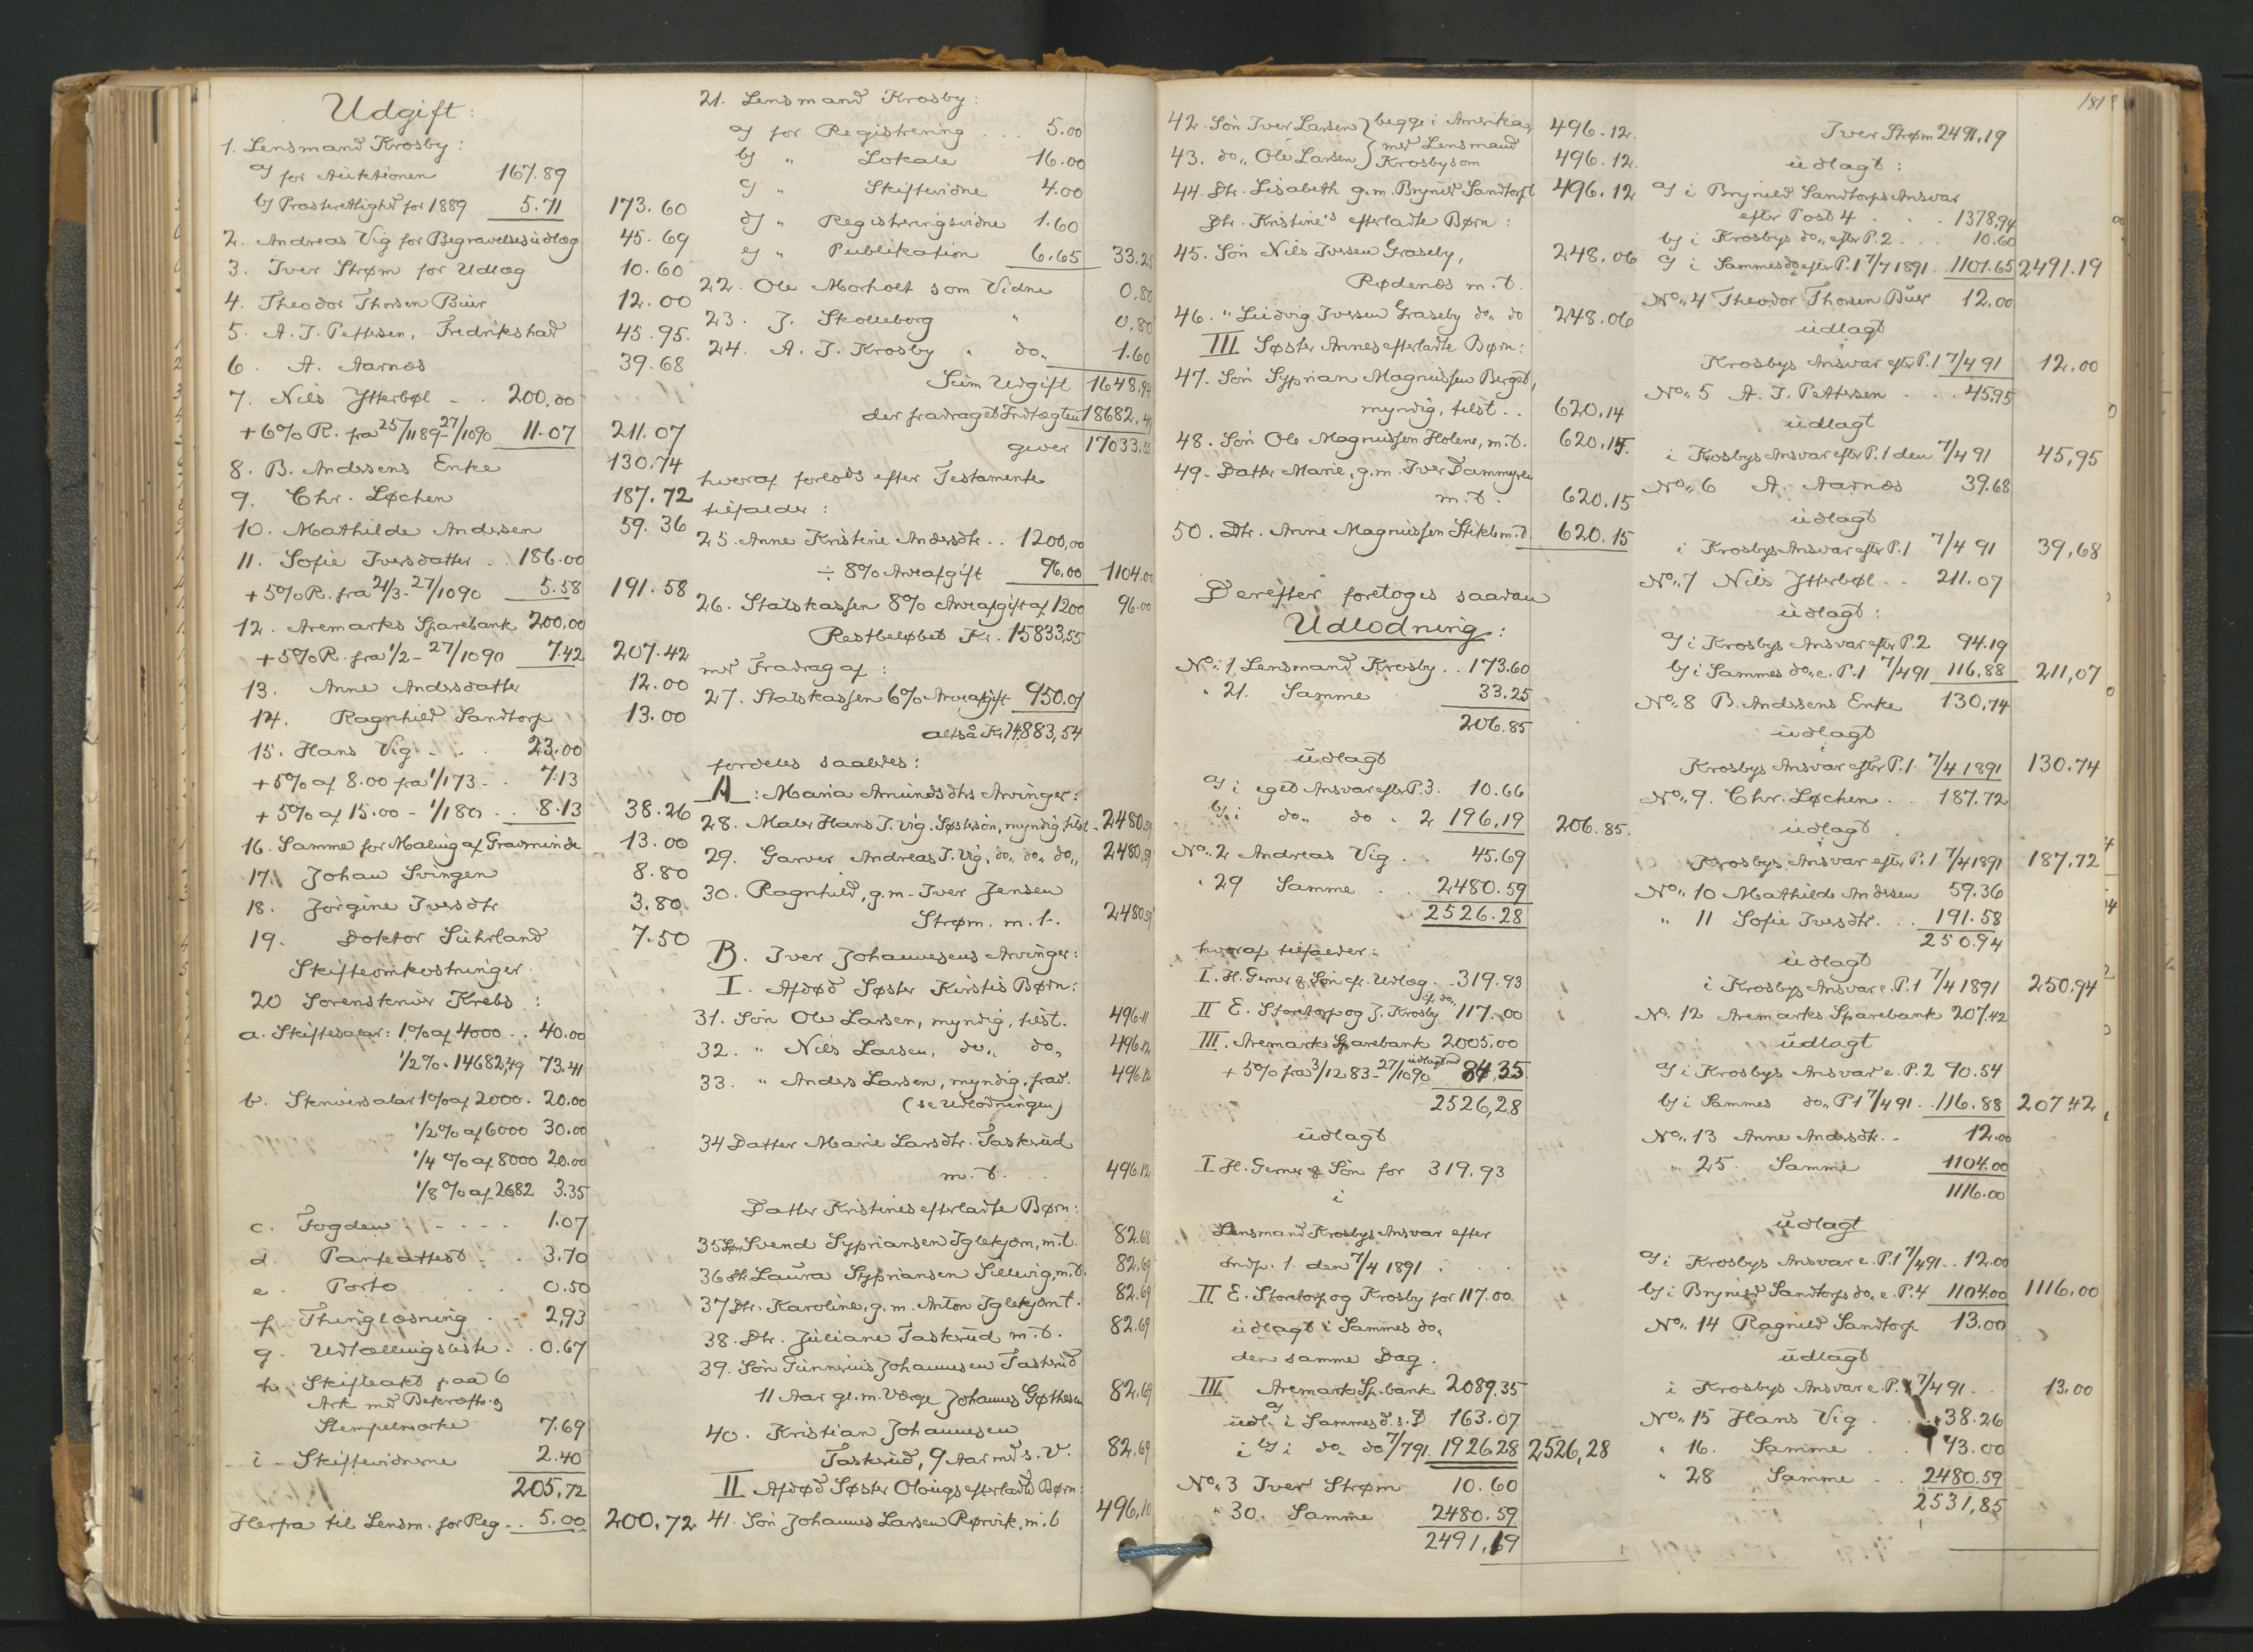 Udgift:
1. Lensmand Krosby:
a) for Auktionen 167.89
b) Præsterettighed for 1889 5.71 173.60
2. Andreas Vig for Begravelsesudlæg 45.69
3. Iver Strøm for Udlæg 10.60
4. Theodor Thorsen Buer 12.00
5. A. J. Pettersen, Fredrikshad 45.95.
6. A. Aarnæs 39.68
7. Nils Ytterbøl - . 200,00
+ 6% R. fra 25/11 89 - 27/10 90 11.07 211.07
8. B. Andersens Enke 130.74
9. Chr. Løchen 187.72
10. Mathilde Andersen 59.36
11. Sofie Iversdatter . . 186.00
+ 5% R. fra 21/3 - 27/10 90 5.58 191.58
12. Aremarks Sparebank 200,00
+ 5% R. fra 1/2 - 27/10 90 7.42 207.42
13. Anne Andersdatter 12.00
14. Ragnhild Sandtorp 13.00
15. Hans Vig - . . 23.00
+ 5% af 8.00 fra 1/1 73 - . 7.13
+ 5% af 15.00 - 1/1 80 . . 8.13 38.26
16. Samme for Maling af Gravminde 13.00
17. Johan Svingen 8.80
18. Jørgine Iversdtr 3.80
19. Doktor Suhrland 7.50
Skifteomkostninger.
20 Sorenskriver Krebs:
a. Skiftesalar: 1% af 4000 . . 40.00
1/2% . 14682,49 73.41
b. Skriversalar 1% af 2000 . 20.00
1/2% af 6000 30.00
1/4 % af 8000 20.00
1/8 % af 2682 3.35
c. Fogden - . - . . 1.07
d. Panteattest . . 3.70
e. Porto . . 0.50
f. Thinglæsning . - 2,93
g. Udtællingsliste . . 0.67
h. Skifteakt paa 6
Ark med Bekræftn. og
Stempelmærke 7.69
i - Skiftevidnerne 2.40
205,72
Herfra til Lensm. for Reg . . 5.00 200.72
21. Lensmand Krosby:
a) for Registrering . . . 5.00
b) " Lokale 16.00
c) " Skiftevidne 4.00
d) " Registreringsvidne 1.60
e) " Publikation 6.65 33.25
22. Ole Morholt som Vidne 0,80
23. J. Skolleborg " 0,80
24. A. J. Krosby " do„ 1.60
Sum Udgift 1648,94
der fradraget Indtægten 18682,49
giver 17033,55
hvoraf forlods efter Testamente
tilfalder:
25. Anne Kristine Andersdtr . . 1200,00
÷ 8% Arveafgift 96.00 1104.00
26. Statskassen 8% Arveafgift af 1200 96.00
Restbeløbet Kr. 15833,55
med Fradrag af:
27. Statskassen 6% Arveafgift 950.01
altså Kr 14,883,54
fordeles saaledes:
A: Maria Amundsdtrs Arvinger:
28. Maler Hans J. Vig. Søstersøn, myndig, tilst - 2480,59
29. Garver Andreas J. Vig, do„ do„ do„ 2480,59
30. Ragnhild, g. m. Iver Jensen
Strøm. m. t. 2480.59
B. Iver Johannesens Arvinger:
I. Afdød Søster Kirstis Børn:
31. Søn Ole Larsen, myndig, tilst. 496.11
32. " Nils Larsen, do„ do„ 496.12
33. " Anders Larsen, myndig, frav. 496.12
(se Udlodningen)
34 Datter Marie Larsdtr. Taskerud
m. t. . . 496.12
Datter Kristines efterladte Børn:
35 Søn Svend Sypriansen Iglekjøn, m.t. 82.68
36 Dtr. Laura Sypriansen Sillevig, m.t. 82,69
37 Dtr. Karoline, g. m. Anton Iglekjøn t. 82.69
38. Dtr. Juliane Taskerud m. t. 82.69
39. Søn Gunnerius Johannesen Taskerud
11 Aar gl. m. Værge Johannes Gøthesen 82,69
40. Kristian Johannesen
Taskerud, 9 Aar med s. V. 82,69
II Afdød Søster Olougs efterladte Børn:
41. Søn Johannes Larsen Rørvik, m. t 496,10
1818
42. Søn Iver Larsen } begge i Amerika, 496.12.
43. do„ Ole Larsen } med Lensmand Krosby som 496.12.
44. Dtr. Lisabeth g. m. Brynild Sandtorp t 496.12
Dtr. Kristine's efterladte Børn:
45. Søn Nils Iversen Graseby, 248.06
Rødenæs m. t.
46. " Ludvig Iversen Graseby do„ do 248.06
III Søster Annes efterladte Børn:
47. Søn Syprian Magnussen Berget,
myndig, tilst . . 620,14
48. Søn Ole Magnussen Holene, m. t. 620,15.
49. Datter Marie, g. m. Iver Dammyren
m. t. 620.15
50. Dtr. Anne Magnussen Stikle m. t. 620.15
Derefter foretoges saadan
Udlodning:
No. 1 Lensmand Krosby . . 173.60
" 21. Samme 33.25
206.85
udlagt
a) i eget Ansvar efter P. 3. 10.66
b) i do„ do „ 2 196.19 206.85.
No. 2 Andreas Vig . . 45.69
" 29 Samme . . 2480.59
2526.28
hvoraf tilfalder:
I. H. Gerner & Søn efr. Udlæg . - 319.93
II E. Storetorp og J. Krosby ef. do„ 117.00
III. Aremarks Sparebank 2005,00
+ 5% fra 3/12 83 - 27/10 90 udlagt med 84,35
2526,28
udlagt
I. H. Gerner & Søn for 319.93
i
Lensmand Krosbys Ansvar efter
Indp. 1. den 7/4 1891 . . .
II E. Storetorp og Krosby for 117.00
udlagt i Sammes do„
den samme Dag.
III Aremark Sp.bank 2089.35
udl. a) i Sammes d. s. D 163.07
i b) i do„ do 7/7 91. 1926.28 2526,28
No. 3 Iver Strøm 10.60
" 30. Samme 2480.59
2491,19
Iver Strøm 2491,19
udlagt:
a) i Brynild Sandtorps Ansvar
efter Post 4 . . . 1378,94
b) i Krosbys do„ efter P. 2 . . . 10.60
c) i Sammes do efter P. 1 7/7 1891 . 1101.65 2491.19
No. 4 Theodor Thorsen Buer 12.00
udlagt
i
Krosbys Ansvar efter P. 1 7/4 91 12.00
No. 5 A. J. Pettersen . . . 45.95
udlagt
i Krosbys Ansvar efter P. 1 den 7/4 91 45,95
No. 6 A. Aarnæs 39.68
udlagt
i Krosbys Ansvar efter P. 1 7/4 91 39,68
No. 7 Nils Ytterbøl . . 211.07
udlagt:
a) i Krosbys Ansvar efter P. 2 94.19
b) i Sammes do„ e. P. 1 7/4 91 116,88 211,07
No. 8 B. Andersens Enke 130,74
udlagt
i
Krosbys Ansvar efter P. 1 7/4 1891 130.74
No. 9. Chr. Løchen . . 187.72
udlagt
i
Krosbys Ansvar efter P. 1 7/4 1891 187.72
No. 10 Mathilde Andersen 59.36
" 11 Sofie Iversdtr. . . 191.58
250.94
udlagt
i Krosbys Ansvar e. P. 1 7/4 1891 250,94
No. 12 Aremarks Sparebank 207.42
udlagt
a) i Krosbys Ansvar e. P. 2 90.54
b) i Sammes do„ P. 1 7/4 91 . . 116.88 207.42
No. 13 Anne Andersdtr. . 12.00
" 25. Samme 1104.00
1116.00
udlagt
a) i Krosbys Ansvar e. P. 1 7/4 91 . . 12.00
b) i Brynild Sandtorps do„ e. P. 4 1104.00 1116,00
No. 14 Ragnild Sandtorp 13.00
udlagt
i Krosbys Ansvar e. P. 1 7/4 91 . . 13.00
No. 15 Hans Vig . . . 38.26
" 16. Samme . . 13.00
" 28 Samme . . 2480.59
2531,85